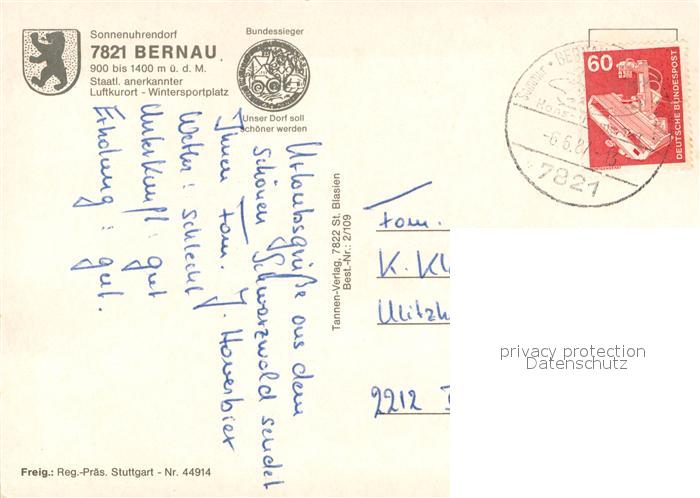 Sonnenuhrendorf
7821 BERNAU
900 bis 1400 m ü. d. M.
Staatl. anerkannter
Luftkurort - Wintersportplatz
Bundessieger
Unser Dorf soll
schöner werden
Urlaubsgrüße aus dem
schönen Schwarzwald sendet
Ihnen Fam. J. Haverbier
Wetter: schlecht
Unterkunft: gut
Erholung: gut.
Tannen-Verlag, 7822 St. Blasien
Best.-Nr.: 2/109
60
DEUTSCHE BUNDESPOST
BERNAU
-6.6.8
7821
Fam.
K. Kl
2212
privacy protection
Datenschutz
Freig.: Reg.-Präs. Stuttgart - Nr. 44914